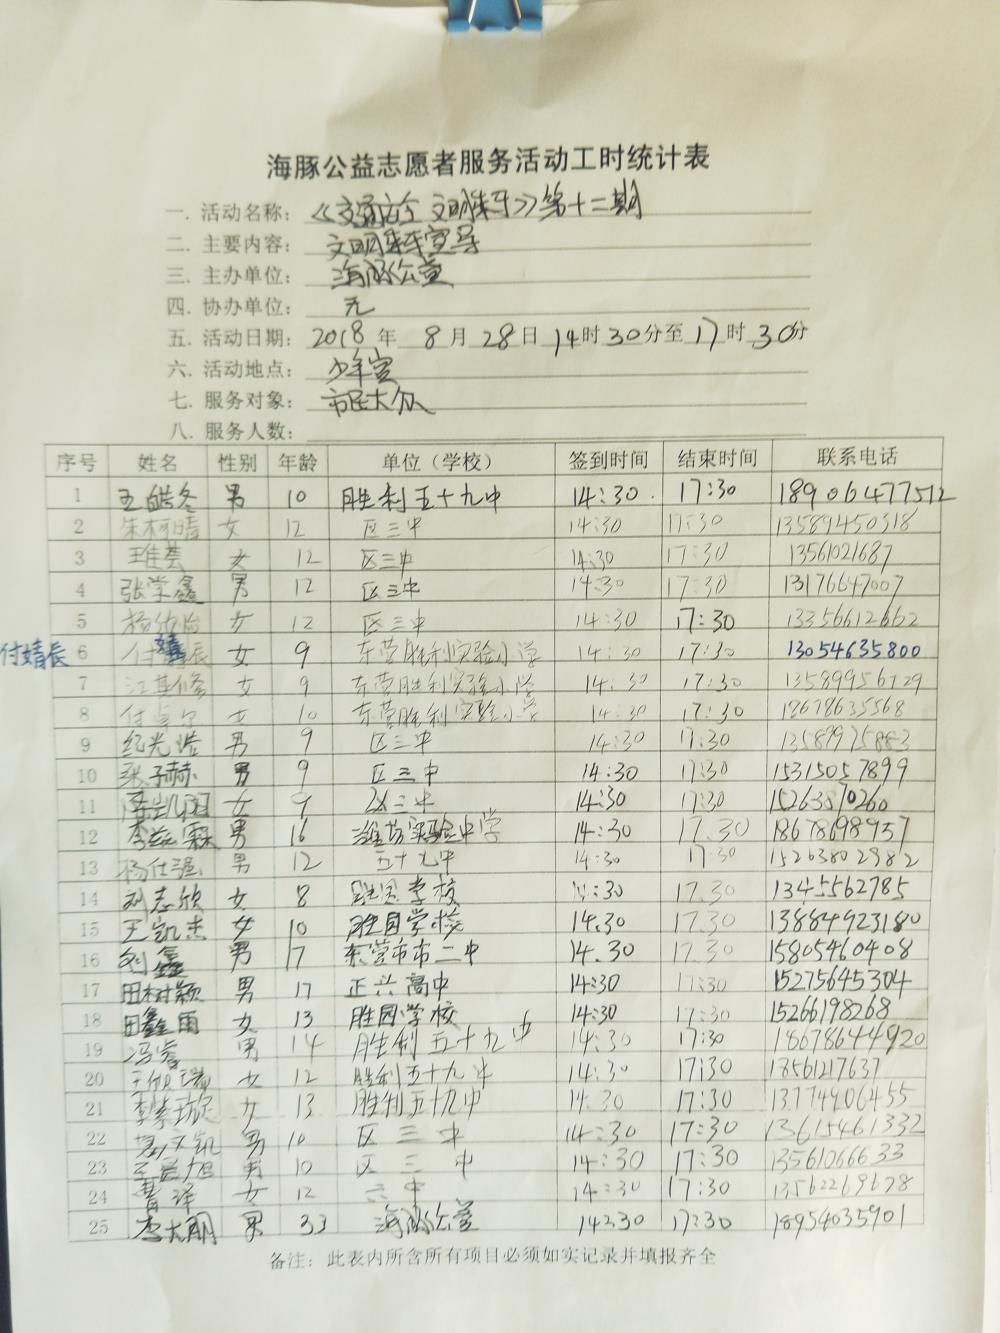 海豚公益志愿者服务活动工时统计表
一. 活动名称: 《交通安全 文明乘车》第十二期
二. 主要内容: 文明乘车宣导
三. 主办单位: 海豚公益
四. 协办单位: 无
五. 活动日期: 2018年 8月28日14时30分至17时30分
六. 活动地点: 少年宫
七. 服务对象: 市民大众
八. 服务人数:
序号 姓名 性别 年龄 单位(学校) 签到时间 结束时间 联系电话
1 王皓冬 男 10 胜利五十九中 14:30 17:30 18906477512
2 朱柯晴 女 12 区三中 14:30 17:30 13589450318
3 王佳荟 女 12 区三中 14:30 17:30 13561021687
4 张学鑫 男 12 区三中 14:30 17:30 13176647007
5 杨 女 12 区三中 14:30 17:30 13356612662
付婧辰 6 付婧辰 女 9 东营胜利实验小学 14:30 17:30 13054635800
7 江 修 女 9 东营胜利实验小学 14:30 17:30 13589956729
8 付 尔 女 10 东营胜利实验小学 14:30 17:30 18678635568
9 纪光浩 男 9 区三中 14:30 17:30 13589975883
10 张子赫 男 9 区三中 14:30 17:30 15315057899
11 凯 女 9 区三中 14:30 17:30 15263870260
12 李 霖 男 16 潍坊实验中学 14:30 17.30 18678698957
13 杨仕强 男 12 五十九中 14:30 17:30 15263802982
14 刘志欣 女 8 胜园学校 14:30 17.30 1345562785
15 王凯杰 女 10 胜园学校 14.30 17.30 13884923180
16 刘鑫 男 17 东营市市二中 14.30 17.30 15805460408
17 田树颖 男 17 正兴高中 14:30 17:30 15275645304
18 田鑫雨 女 13 胜园学校 14:30 17:30 15266198268
19 冯睿 男 14 胜利五十九中 14:30 17:30 18678644920
20 王欣瑞 女 12 胜利五十九中 14:30 17:30 18561217637
21 李紫璇 女 13 胜利五十九中 14:30 17:30 13774906455
22 文凯 男 10 区三中 14:30 17:30 13615461332
23 王益旭 男 10 区三中 14:30 17:30 13561066633
24 曹泽 女 12 六中 14:30 17:30 13562269678
25 李大鹏 男 33 海豚公益 14:30 17:30 18954035901
备注: 此表内所含所有项目必须如实记录并填报齐全